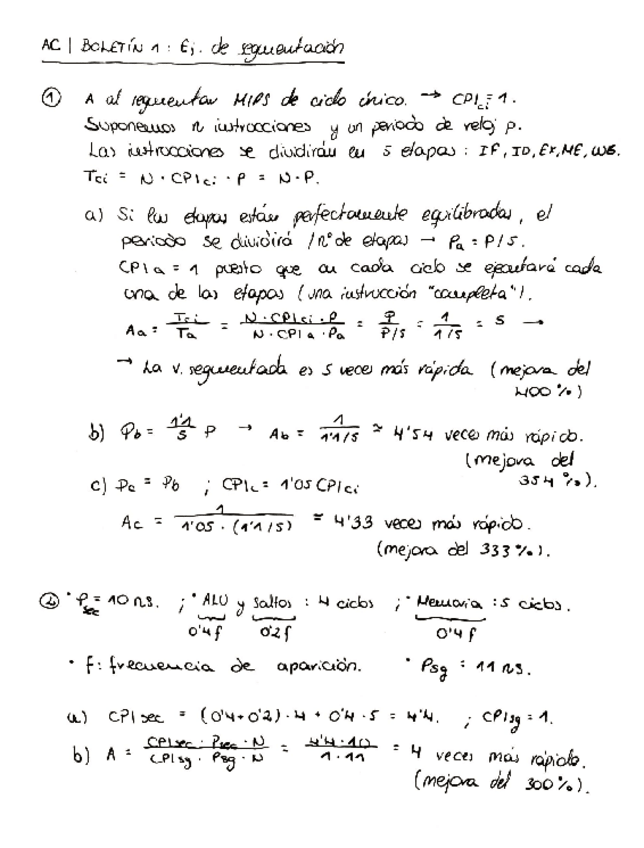 AC | BOLETÍN 1 : Ej. de segmentación
① A al segmentar MIPS de ciclo único. → CPIci = 1.
Suponemos n instrucciones y un periodo de reloj p.
Las instrucciones se dividirán en 5 etapas : IF, ID, EX, ME, WB.
Tci = N · CPIci · P = N · P.
a) Si las etapas están perfectamente equilibradas, el
periodo se dividirá /nº de etapas → Pa = P/5.
CPIa = 1 puesto que en cada ciclo se ejecutará cada
una de las etapas (una instrucción "completa").
Aa = Tci / Ta = N · CPIci · P / N · CPIa · Pa = P / P/5 = 1 / 1/5 = 5 →
→ La v. segmentada es 5 veces más rápida (mejora del
400 %)
b) Pb = 1'1 / 5 P → Ab = 1 / 1'1/5 ≃ 4'54 veces más rápido.
(mejora del
354 %).
c) Pc = Pb ; CPIc = 1'05 CPIci
Ac = 1 / 1'05 · (1'1/5) = 4'33 veces más rápido.
(mejora del 333 %).
② · Psec = 10 ns. ; · ALU y saltos : 4 ciclos ; · Memoria : 5 ciclos.
0'4f 0'2f 0'4f
· f: frecuencia de aparición. · Psg = 11 ns.
a) CPIsec = (0'4+0'2) · 4 + 0'4 · 5 = 4'4. ; CPIsg = 1.
b) A = CPIsec · Psec · N / CPIsg · Psg · N = 4'4 · 10 / 1 · 11 = 4 veces más rápido.
(mejora del 300 %).